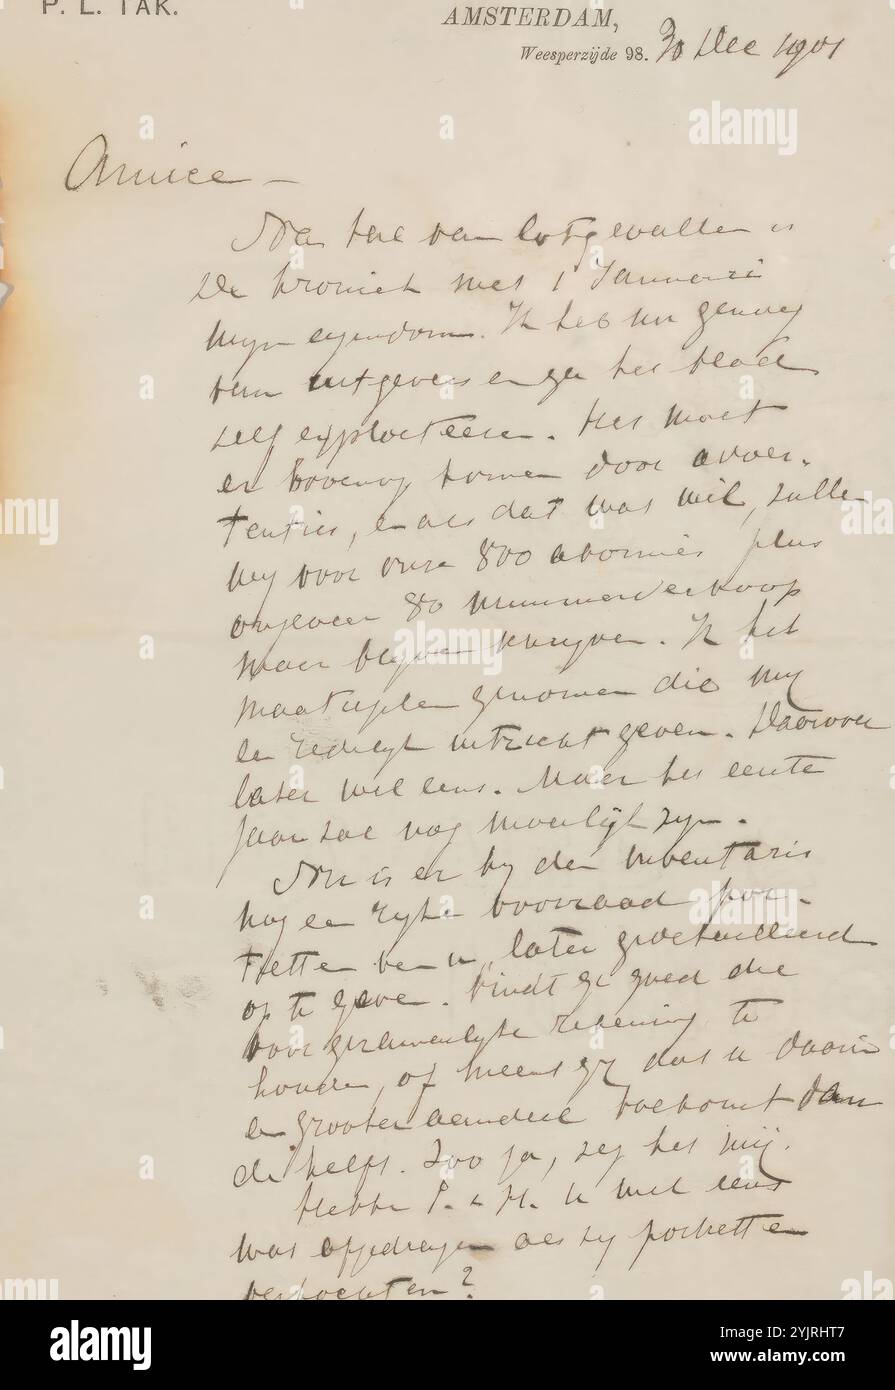 P. L. TAK.
AMSTERDAM,
Weesperzijde 98. 30 Dec 1901
Amice —
Na tal van lotgevallen is
De Kroniek met 1 Januari
mijn eigendom. Ik heb nu genoeg
van uitgevers en ga het blad
zelf exploiteeren. Het moet
er bovenop komen door adver-
tenties, en als dat was wil, zullen
wij voor onze 800 abonnés plus
ongeveer 80 nummerverkoop
meer krijgen. Ik heb
maatregelen genomen die mij
een redelijk uitzicht geven. Daarover
later wel eens. Maar het eerste
jaar zal nog moeilijk zijn.
Nu is er bij den inventaris
nog een rijke voorraad por-
tretten van u, later
op te geven. Vindt ge goed die
voor gezamenlijke rekening te
houden, of meent gij dat u daarin
een grooter aandeel toekomt dan
de helft. Zoo ja, zeg het mij.
Hebben S. & H. u wel eens
wat afgedragen als zij portretten
verkochten?
alamy
Image ID: 2YJRHT7
www.alamy.com